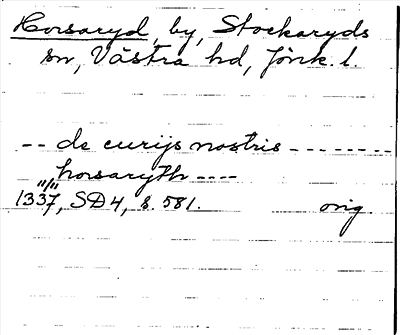 Horsaryd, by, Stockaryds
sn, Västra hd, Jönk. l.
-- de curijs nostris --------
horsaryth ----
11/11
1337, SD4, s. 581. orig.